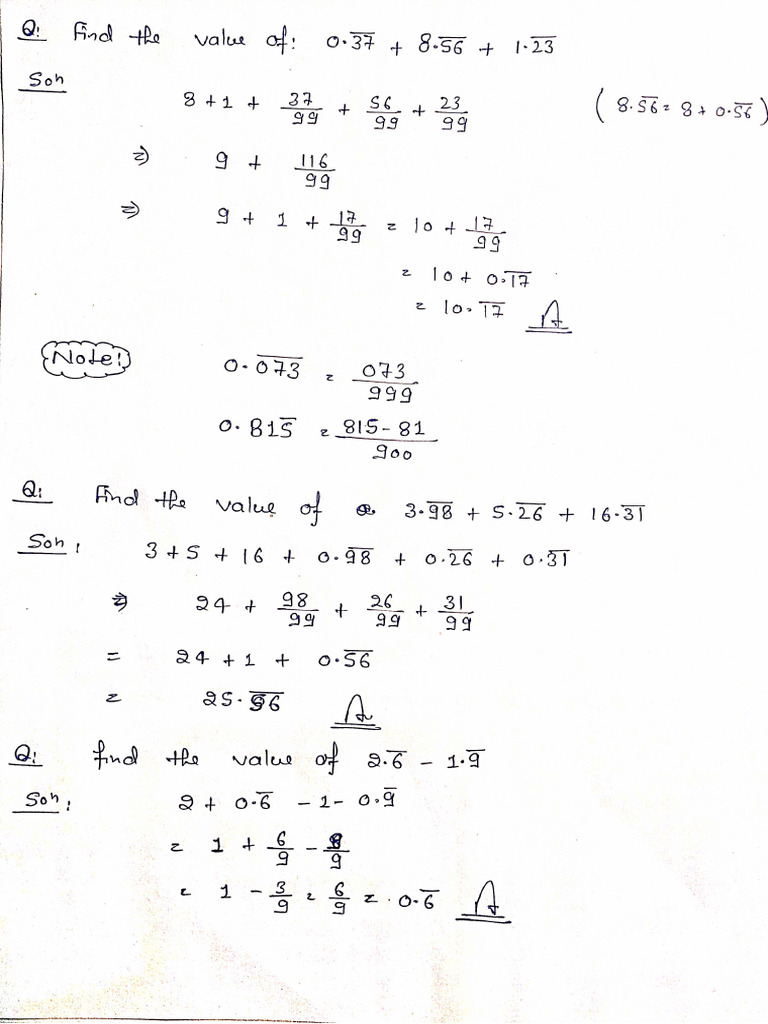 Q: Find the value of: 0.3̅7̅ + 8.5̅6̅ + 1.2̅3̅
Soln
8 + 1 + 37/99 + 56/99 + 23/99 (8.5̅6̅ = 8 + 0.5̅6̅)
⇒ 9 + 116/99
⇒ 9 + 1 + 17/99 = 10 + 17/99
= 10 + 0.1̅7̅
= 10.1̅7̅ A
Note! 0.0̅7̅3̅ = 073/999
0.815̅ = 815 - 81/900
Q: Find the value of 3.9̅8̅ + 5.2̅6̅ + 16.3̅1̅
Soln: 3 + 5 + 16 + 0.9̅8̅ + 0.2̅6̅ + 0.3̅1̅
⇒ 24 + 98/99 + 26/99 + 31/99
= 24 + 1 + 0.5̅6̅
= 25.5̅6̅ A
Q: find the value of 2.6̅ - 1.9̅
Soln: 2 + 0.6̅ - 1 - 0.9̅
= 1 + 6/9 - 9/9
= 1 - 3/9 = 6/9 = 0.6̅ A